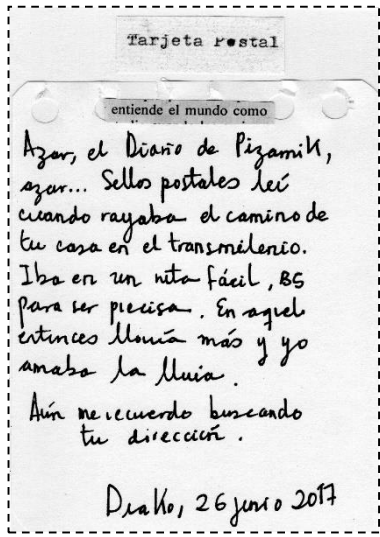 Tarjeta Postal
entiende el mundo como
Azar, el Diario de Pizarnik,
azar... Sellos postales leí
cuando rayaba el camino de
tu casa en el transmilenio.
Iba en un ruta fácil, B5
para ser precisa. En aquel
entonces llovía más y yo
amaba la lluvia.
Aún me recuerdo buscando
tu dirección.
26 junio 2017